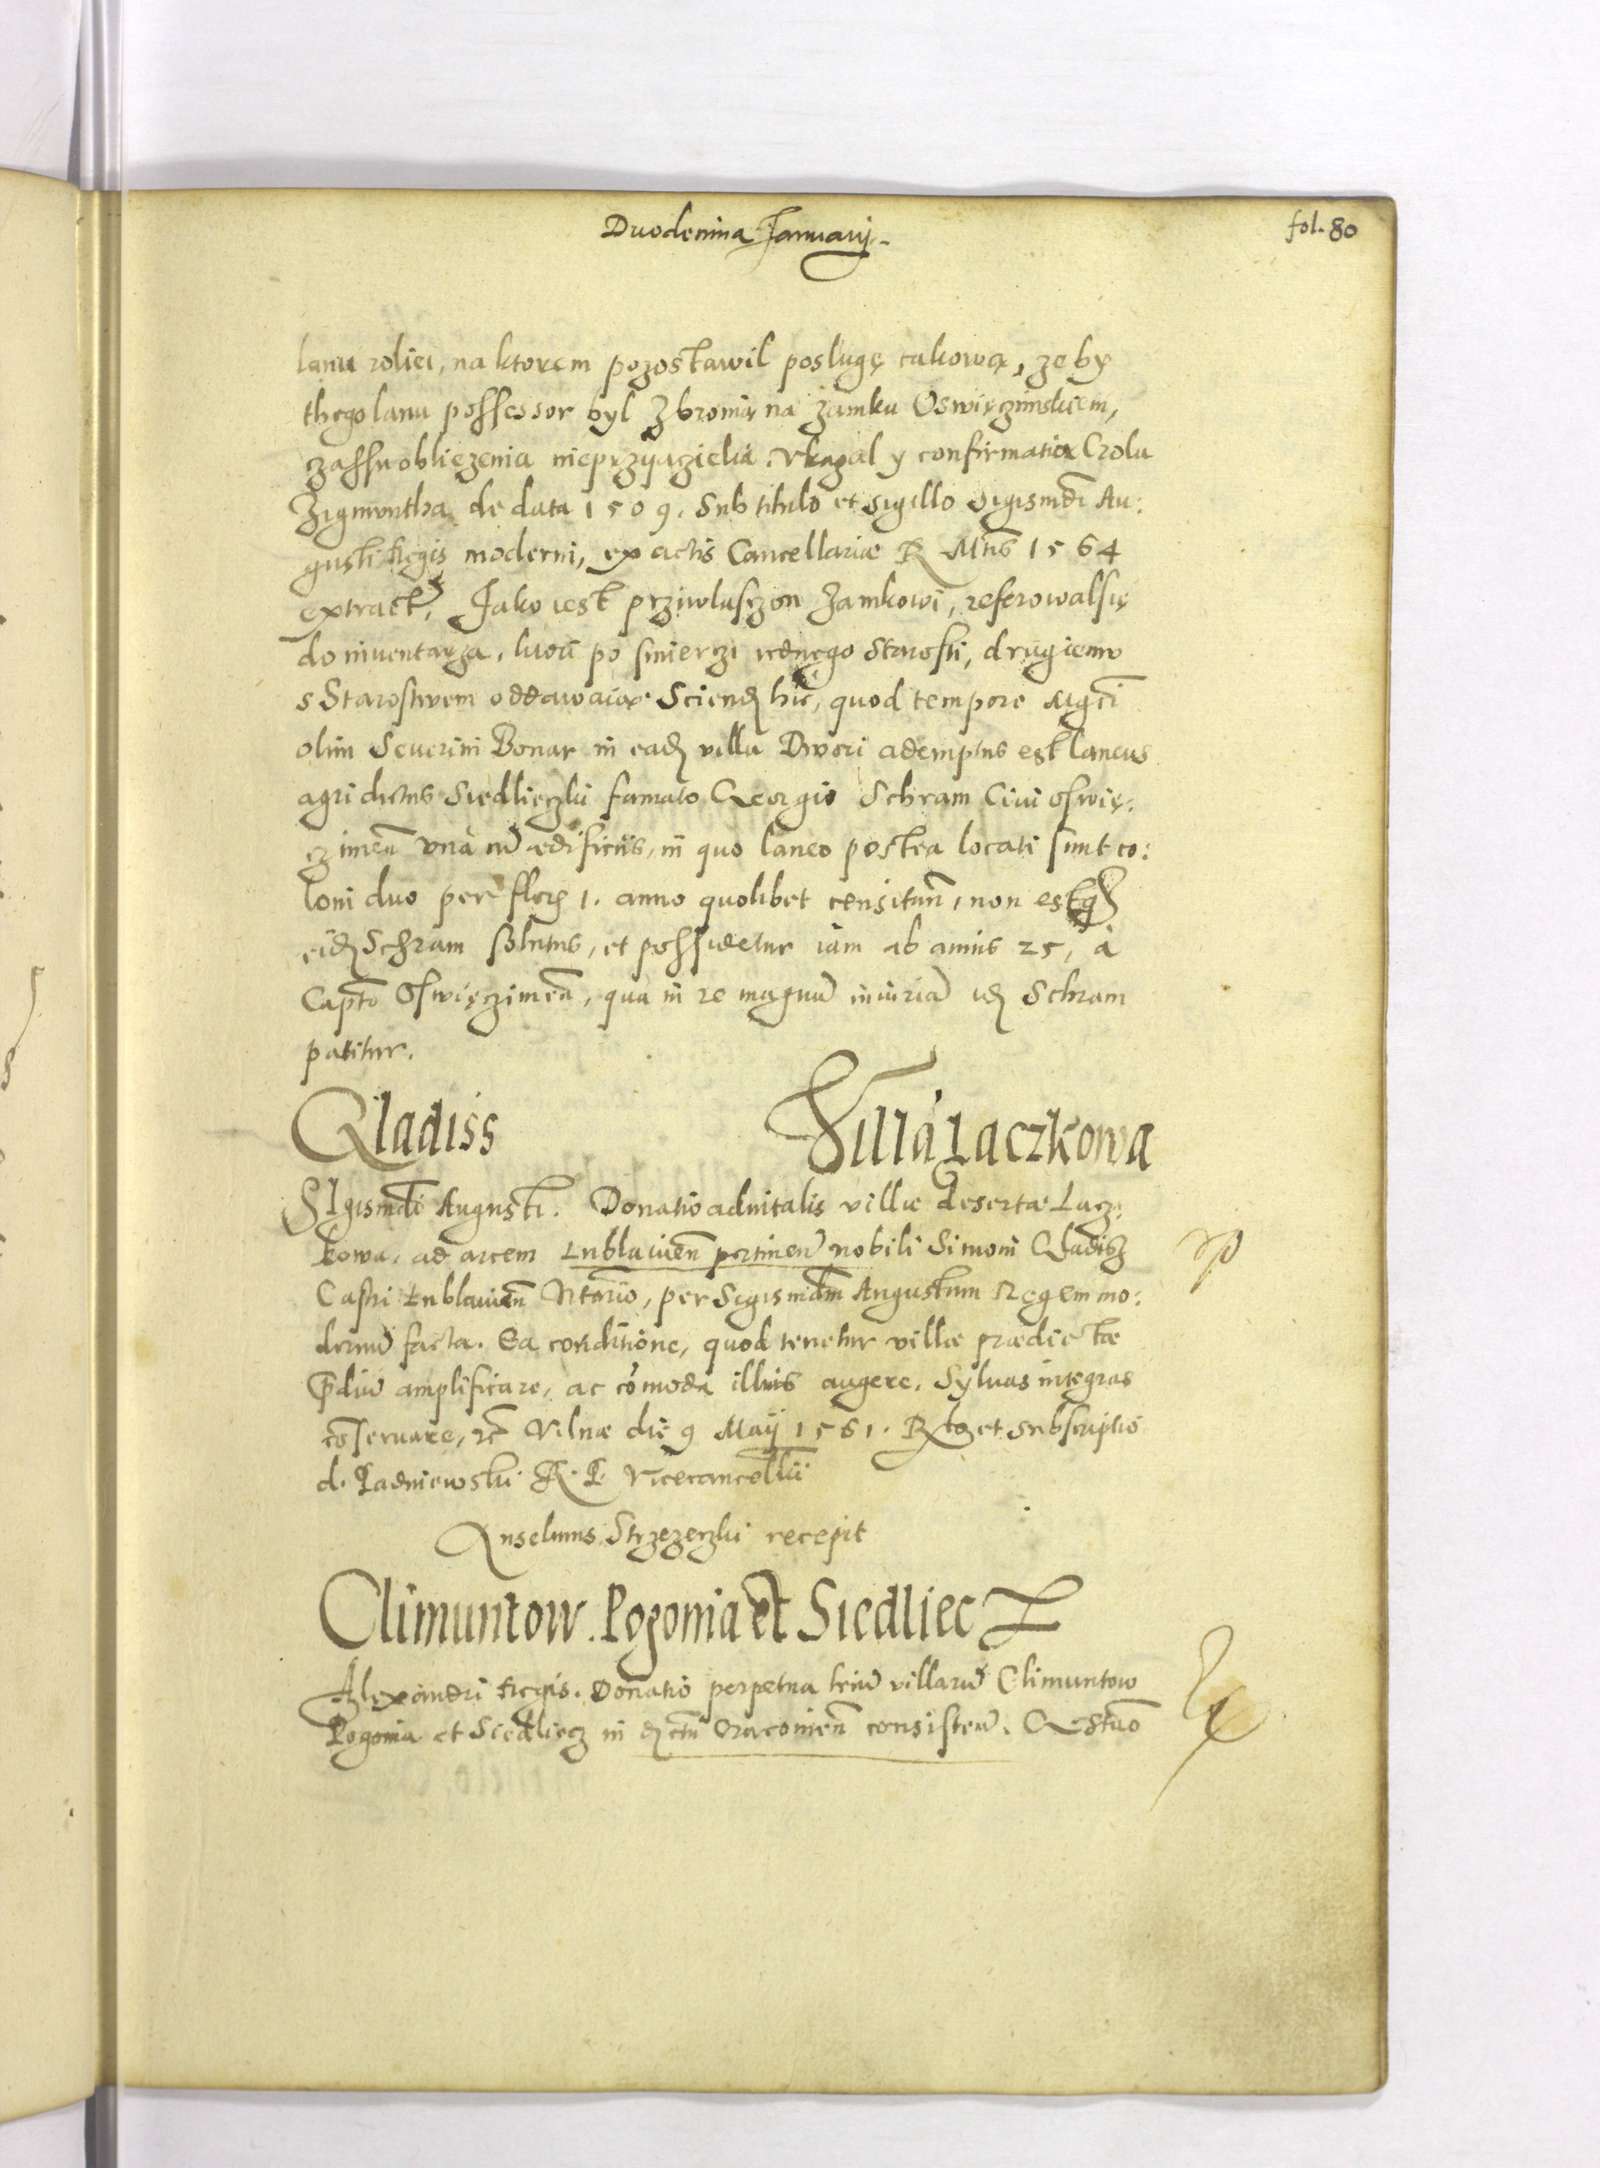 Duodecima Januarij
fol. 80
lanu roliei, na ktorem pozostawil poslugę takową, ze by
thego lanu possessor byl z bronią na zamku Oswięczimskiem,
czassu obliezenia nieprzyiaczielia. Vkazal y confirmatią Crolu
Zigmuntha de data 1509. Sub titulo et sigillo Sigismdi Au:
gusti Regis moderni, ex actis Cancellariæ R Mtis 1564
extract, Jako iest prziwlasczon Zamkowi, referowal się
do inuentarza, ktori po smierczi iednęgo Starosti, drugiemu
s Starostwem oddawaią. Sciend hic, quod tempore Mgci
olim Seuerini Bonar in ead villa Dwori ademptus est laneus
agri dictus Siedlieczki famato Georgio Schram Ciui Oswię:
czimen vna cu ædificiis, in quo laneo postea locati sunt co:
loni duo per flor 1. anno quolibet censitum, non estq
eid Schram solutus, et possidetur iam ab annis 25, à
Capto Oswięczimen, qua in re magna iniuria id Schram
patitur.
Gladiss Villa Laczkowa
SIgismdi Augusti. Donatio aduitalis villæ desertæ Lacz:
kowa, ad arcem Lublauien pertinen nobili Simoni Gladisz
Castri Lublauien Ntario, per Sigismdm Augustum Regem mo:
dernu facta. Ea conditione, quod tenetur villæ prædictæ
prdiu amplificare, ac comoda illius augere, Syluas integras
conseruare, etc Vilnæ die 9 Maij 1561. R et subscriptio
d. Padniewski R. P. Vicecancellii
Anselmus Strzezerzki recepit
Climuntow. Pogonia et Siedliec
Alexandri Regis. Donatio perpetua triu villaru Climuntow
Pogonia et Siedliecz in dictu Cracouien consisten. Gstuo